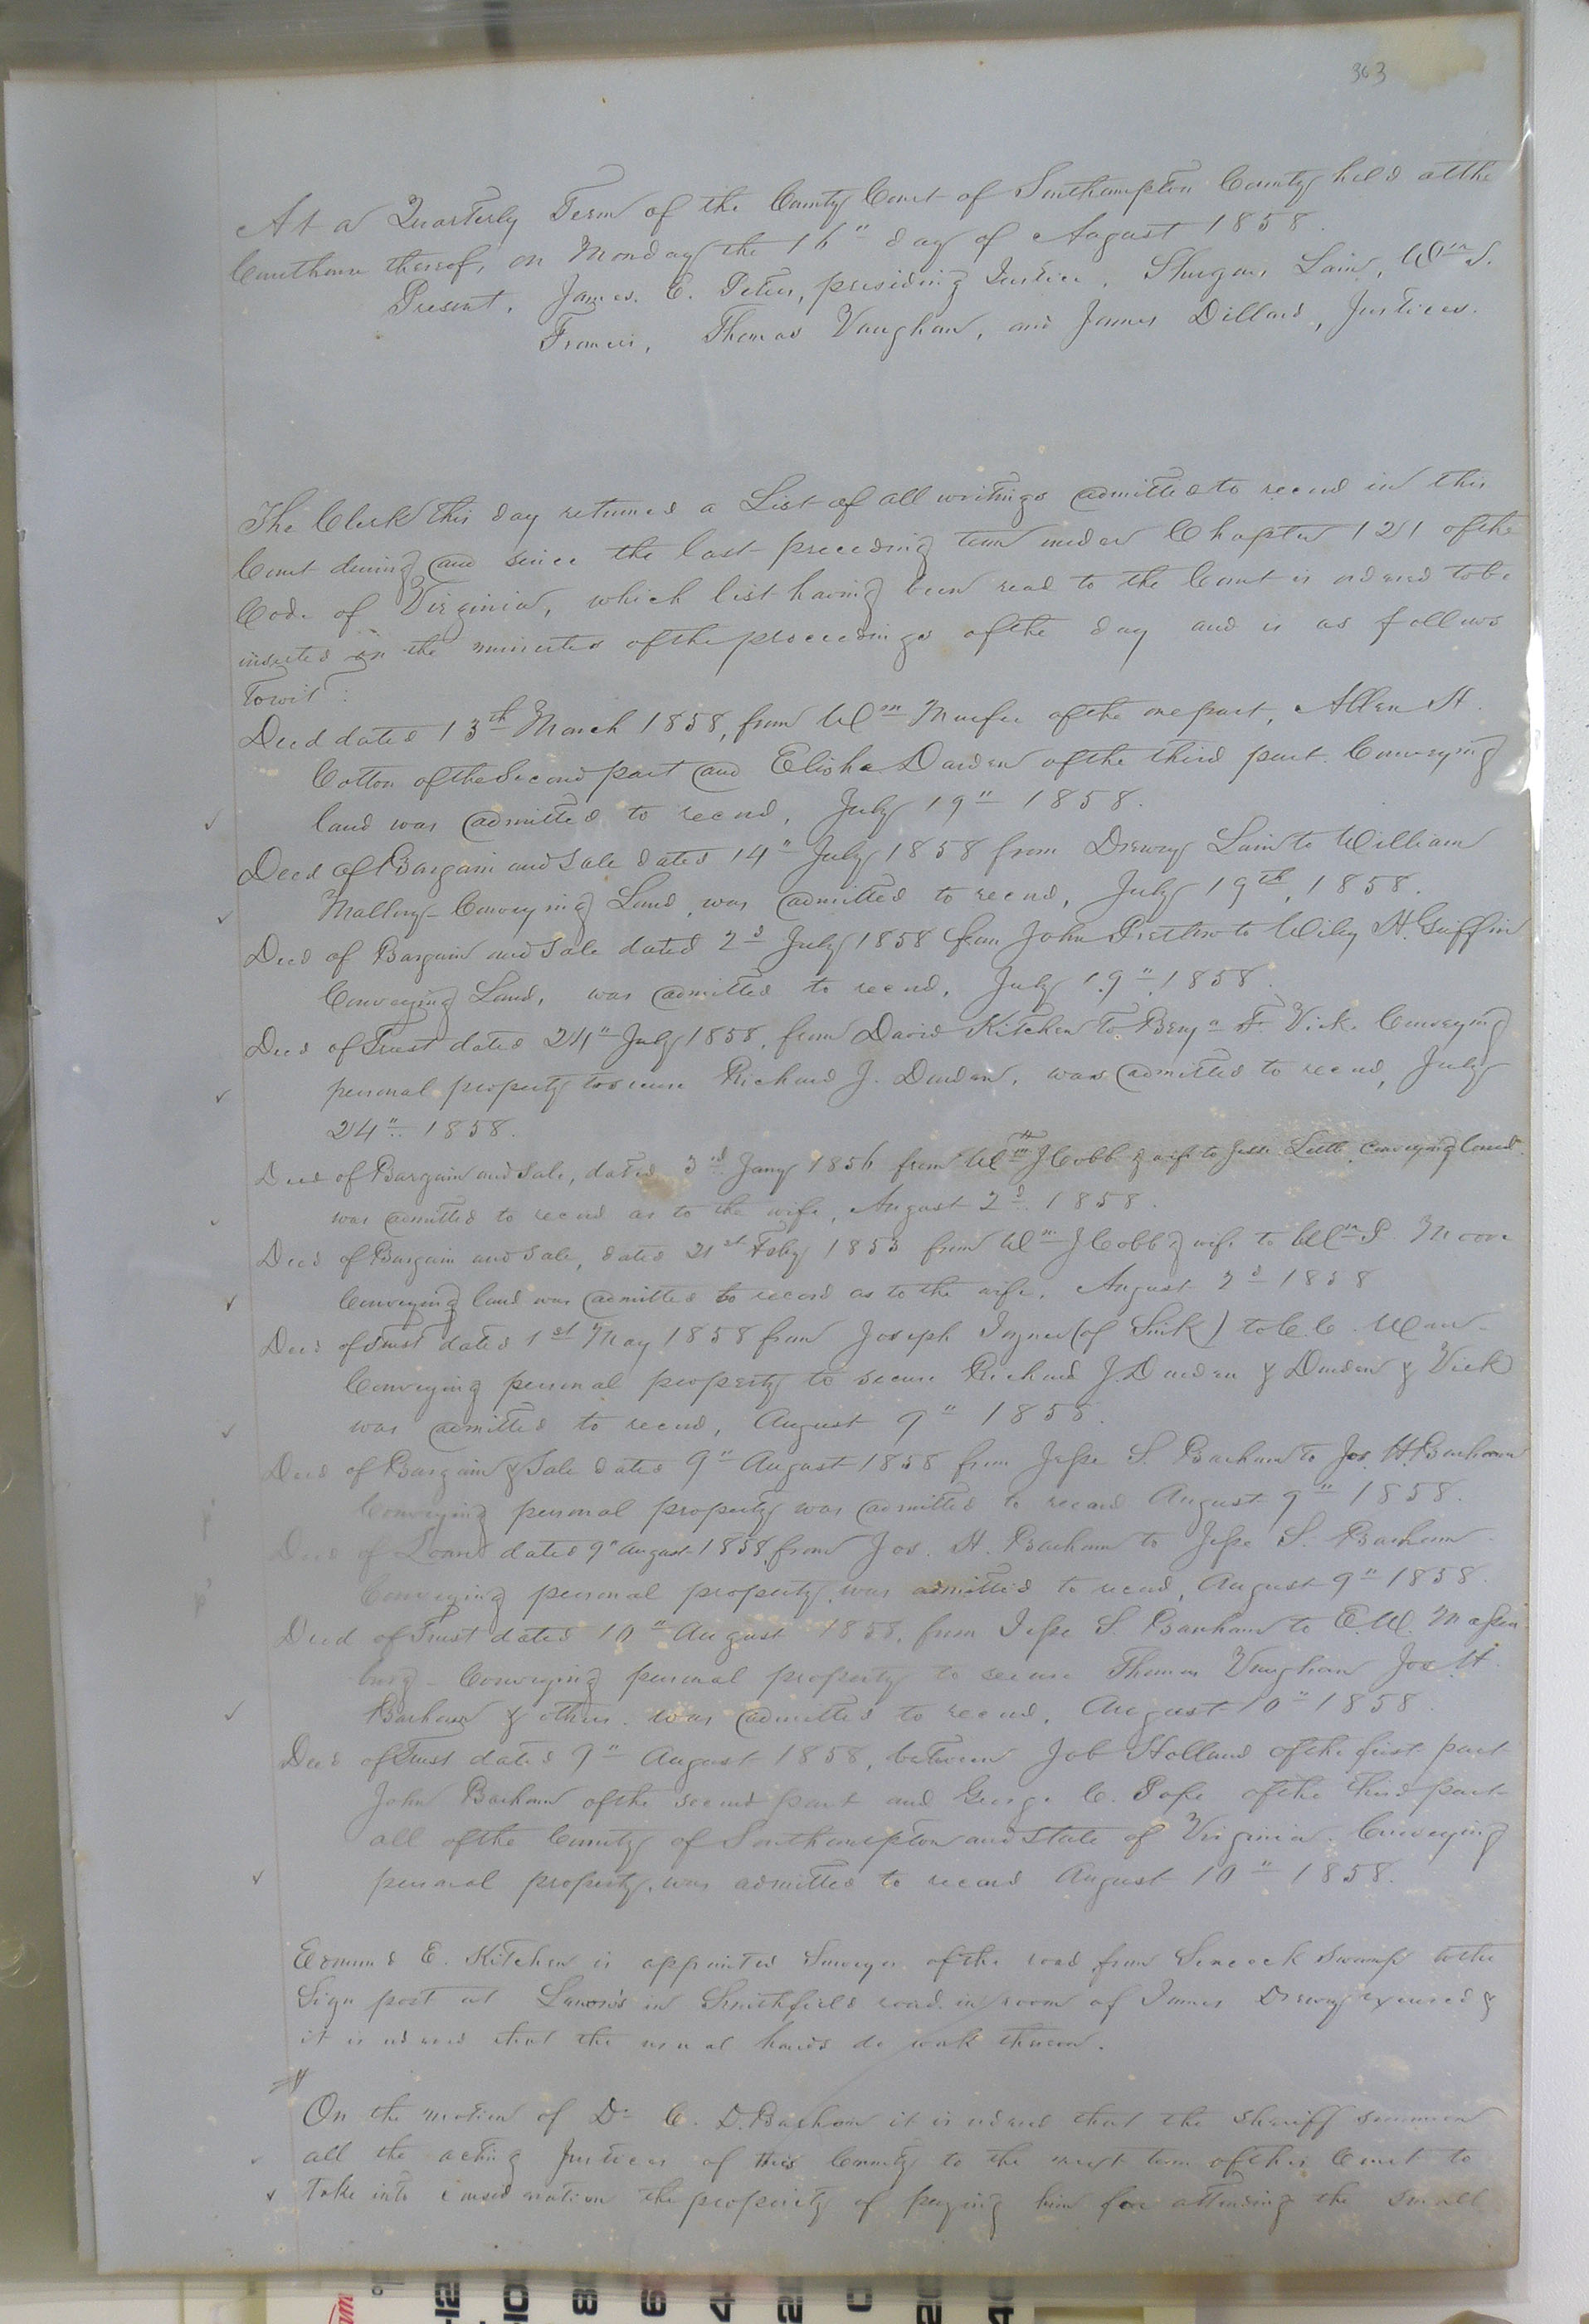 363
At a Quarterly Term of the County Court of Southampton County held at the
Courthouse thereof, on Monday the 16" day of August 1858.
Present, James E. Peters, presiding Justice, Sturgeon Lain, Wm S.
Francis, Thomas Vaughan, and James Dillard, Justices.
The Clerk this day returned a List of all writings admitted to record in this
Court during and since the last preceding term under Chapter 121 of the
Code of Virginia, which list having been read to the Court is ordered to be
inserted in the minutes of the proceedings of the day and is as follows
Towit:
Deed dated 13th March 1858, from Wm Murfee of the one part, Allen H.
Cotton of the Second part and Elisha Darden of the third part. Conveying
land was admitted to record, July 19" 1858.
Deed of Bargain and Sale dated 14" July 1858 from Drewry Lain to William
Mallory Conveying Land, was admitted to record, July 19th, 1858.
Deed of Bargain and Sale dated 2d July 1858 from John Pretlow to Wiley H. Griffin
Conveying Land, was admitted to record, July 19" 1858.
Deed of Trust dated 24" July 1858, from David Kitchen to Benja F. Vick. Conveying
personal property to secure Richard J. Darden, was admitted to record, July
24" 1858.
Deed of Bargain and Sale, dated 3rd Jany 1856 from Wm J Cobb & wife to Jesse Little conveying land
was admitted to record as to the wife, August 2d 1858.
Deed of Bargain and Sale, dated 21st Feby 1853 from Wm J Cobb & wife to Wm P. Moore
Conveying land was admitted to record as to the wife, August 2d 1858
Deed of Trust dated 1st May 1858 from Joseph Joyner (of ) to C. C.
Conveying personal property to secure Richard J. Darden & Darden & Vick
was admitted to record, August 9" 1858.
Deed of Bargain & Sale dated 9" August 1858 from Jesse S. Barham to Jos. H. Barham
Conveying personal property was admitted to record August 9" 1858.
Deed of Loan dated 9" August 1858 from Jos. H. Barham to Jesse S. Barham
Conveying personal property, was admitted to record, August 9" 1858.
Deed of Trust dated 10" August 1858, from Jesse S. Barham to E. W. Massen
burg - Conveying personal property to secure Thomas Vaughan Jos H.
Barham & others. was admitted to record, August 10" 1858.
Deed of Trust dated 9" August 1858, between Job Holland of the first part
John Barham of the second part and George C. Pope of the third part
all of the County of Southampton and State of Virginia. Conveying
personal property, was admitted to record August 10" 1858.
Edmund E. Kitchen is appointed Surveyor of the road from Seacock Swamp to the
Sign post at in Smithfield road in room of James Drewry excused &
it is ordered that the usual hands do work thereon.
On the motion of Dr C. D. Barham it is ordered that the Sheriff summon
all the acting Justices of this County to the next term of this Court to
take into consideration the propriety of paying him for attending the small